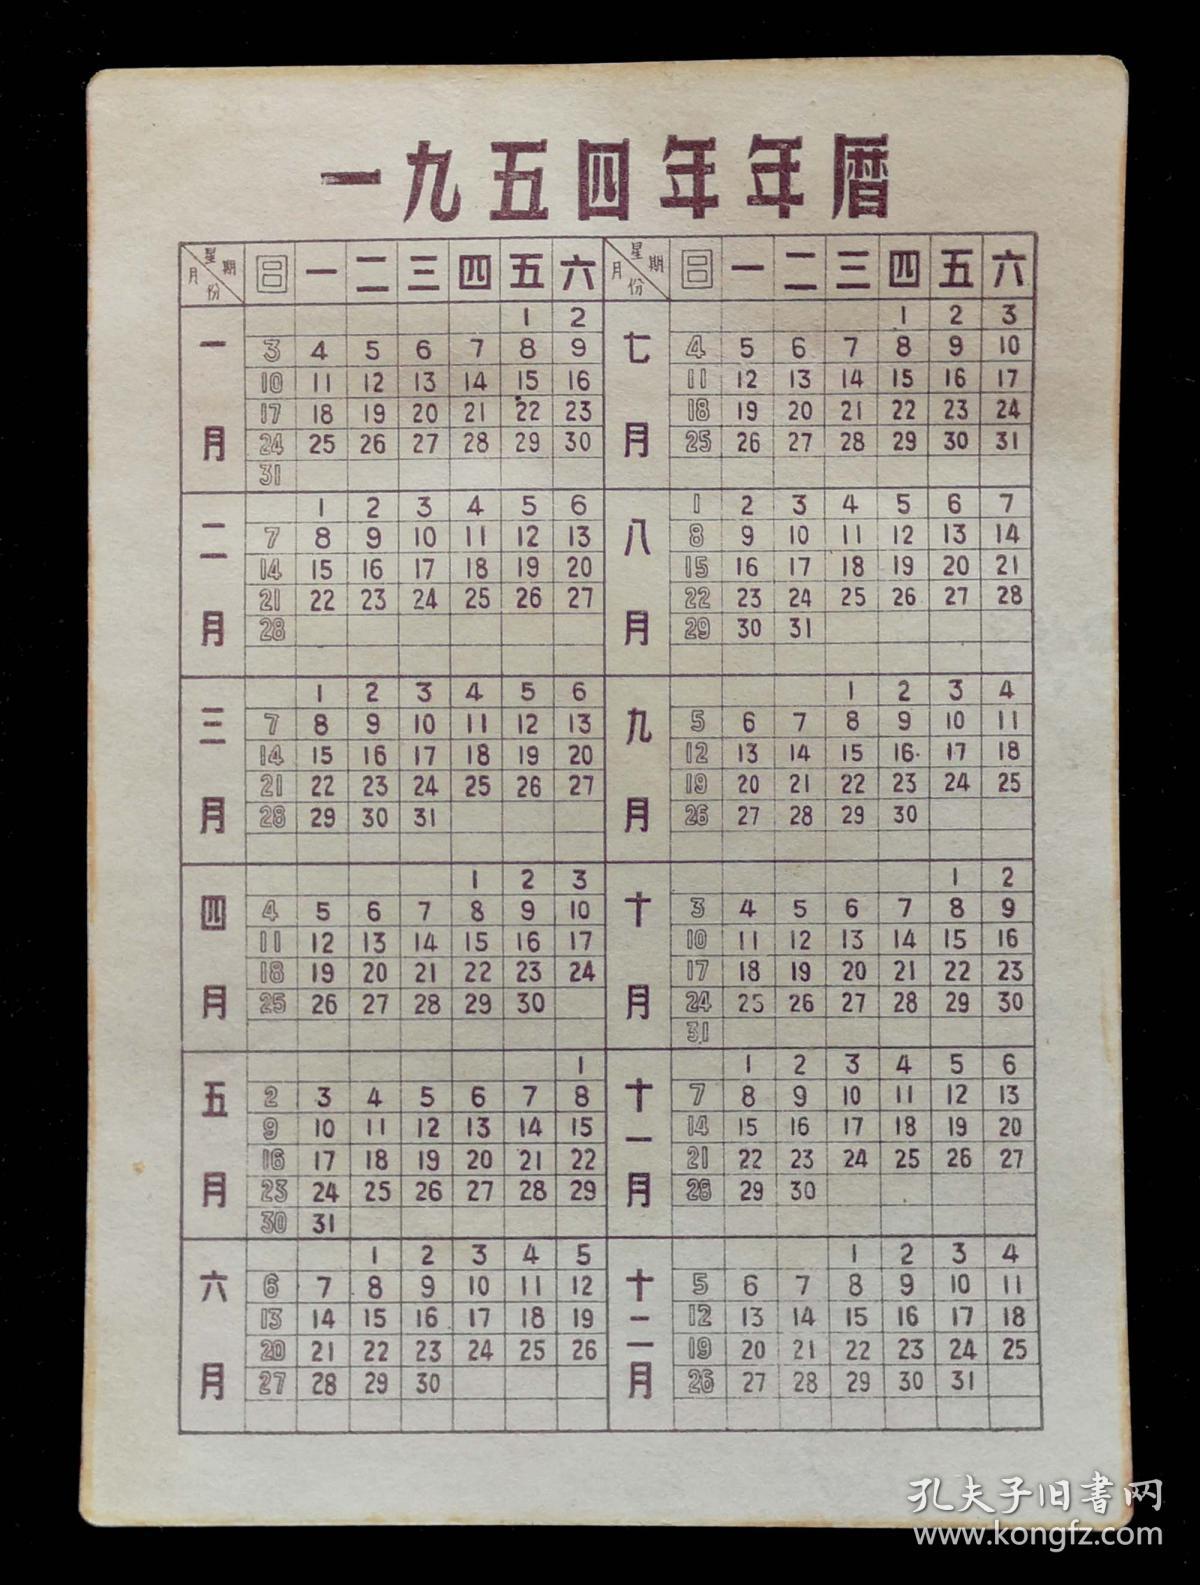 一九五四年年曆
星期 月份 日 一 二 三 四 五 六
一月
1 2
3 4 5 6 7 8 9
10 11 12 13 14 15 16
17 18 19 20 21 22 23
24 25 26 27 28 29 30
31
二月
1 2 3 4 5 6
7 8 9 10 11 12 13
14 15 16 17 18 19 20
21 22 23 24 25 26 27
28
三月
1 2 3 4 5 6
7 8 9 10 11 12 13
14 15 16 17 18 19 20
21 22 23 24 25 26 27
28 29 30 31
四月
1 2 3
4 5 6 7 8 9 10
11 12 13 14 15 16 17
18 19 20 21 22 23 24
25 26 27 28 29 30
五月
1
2 3 4 5 6 7 8
9 10 11 12 13 14 15
16 17 18 19 20 21 22
23 24 25 26 27 28 29
30 31
六月
1 2 3 4 5
6 7 8 9 10 11 12
13 14 15 16 17 18 19
20 21 22 23 24 25 26
27 28 29 30
星期 月份 日 一 二 三 四 五 六
七月
1 2 3
4 5 6 7 8 9 10
11 12 13 14 15 16 17
18 19 20 21 22 23 24
25 26 27 28 29 30 31
八月
1 2 3 4 5 6 7
8 9 10 11 12 13 14
15 16 17 18 19 20 21
22 23 24 25 26 27 28
29 30 31
九月
1 2 3 4
5 6 7 8 9 10 11
12 13 14 15 16 17 18
19 20 21 22 23 24 25
26 27 28 29 30
十月
1 2
3 4 5 6 7 8 9
10 11 12 13 14 15 16
17 18 19 20 21 22 23
24 25 26 27 28 29 30
31
十一月
1 2 3 4 5 6
7 8 9 10 11 12 13
14 15 16 17 18 19 20
21 22 23 24 25 26 27
28 29 30
十二月
1 2 3 4
5 6 7 8 9 10 11
12 13 14 15 16 17 18
19 20 21 22 23 24 25
26 27 28 29 30 31
孔夫子旧書网
www.kongfz.com